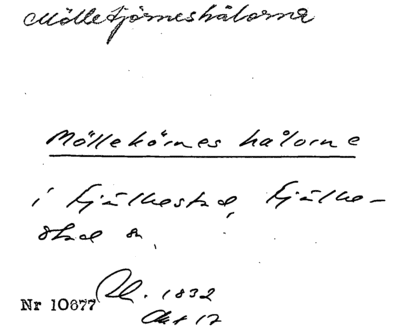 Mölletjörneshålorna
Möllekörnes hålorne
i Fjälkestad, Fjälke-
stad sn
Nr 10677 Rl. 1832
Akt 17